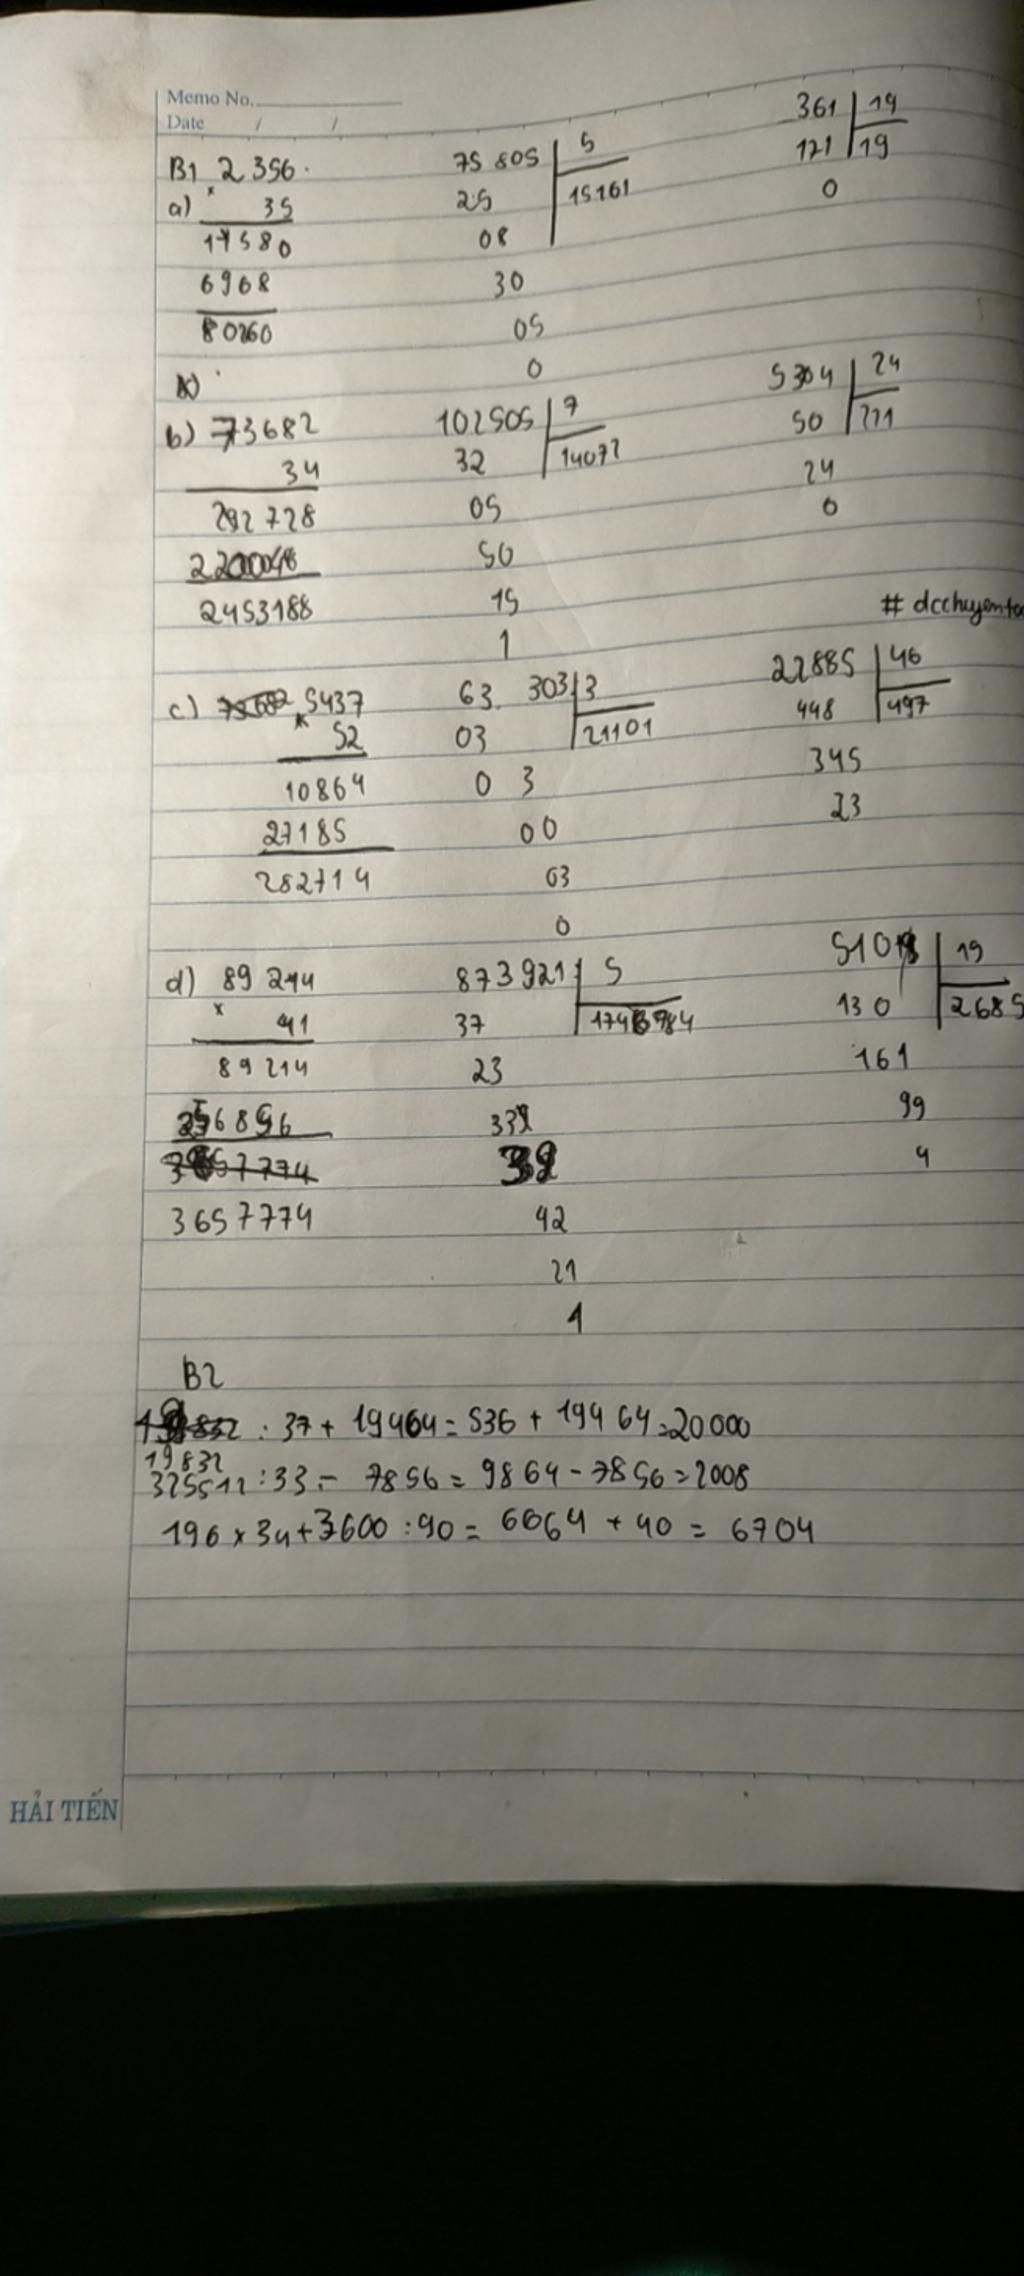 Memo No.
Date / /
B1 2 356.
a) × 35
17580
6968
80260
75 805 5
25 15161
08
30
05
0
361 19
171 19
0
b) 73682
34
292 728
2453188
102505 7
32 14072
05
50
15
1
5304 24
50 221
24
0
# dcchuyento
c) 5437
× 52
10864
27185
282714
63. 303 3
03 21101
0 3
00
03
0
22885 46
448 497
345
23
d) 89 214
× 41
89 214
3657774
873921 5
37
23
42
21
1
19
130 2685
161
99
4
B2
: 37 + 19464 = 536 + 19464 = 20000
19832
325512 : 33 - 7856 = 9864 - 7856 = 2008
196 × 34 + 3600 : 90 = 6664 + 40 = 6704
HẢI TIẾN